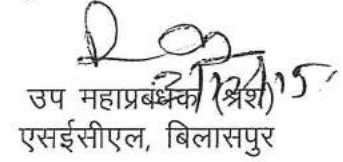 उप महाप्रबंधक (श्रश)
एसईसीएल, बिलासपुर